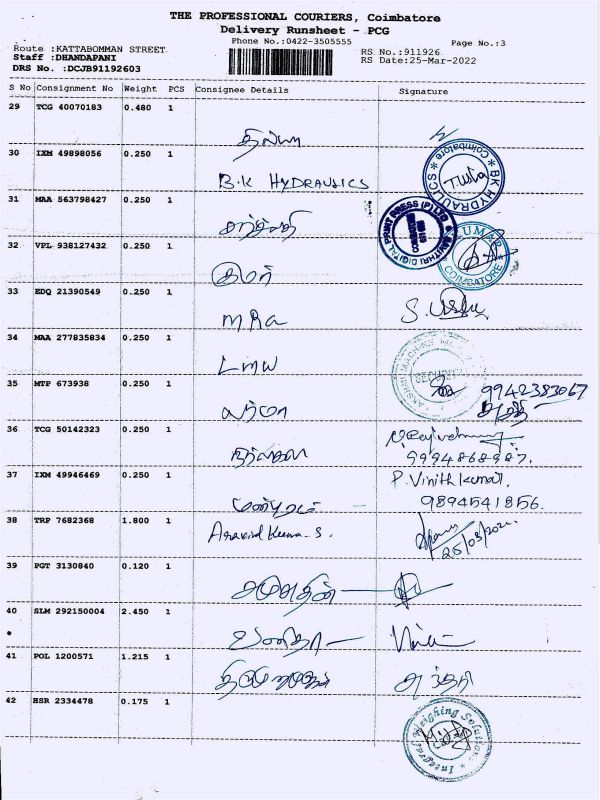 THE PROFESSIONAL COURIERS, Coimbatore
Delivery Runsheet - PCG
Phone No.:0422-3505555
Page No.:3
Route :KATTABOMMAN STREET
Staff :DHANDAPANI
DRS No. :DCJB91192603
RS No.:911926
RS Date:25-Mar-2022
S No Consignment No Weight PCS Consignee Details Signature
29 TCG 40070183 0.480 1
30 IXM 49898056 0.250 1
B.K HYDRAULICS
BK HYDRAULICS Coimbatore
31 MAA 563798427 0.250 1
32 VPL 938127432 0.250 1
குமார்
COIMBATORE
33 EDQ 21390549 0.250 1
MRA
34 MAA 277835834 0.250 1
LMW
SECURITY
35 MTP 673938 0.250 1
வர்மா
9942383067
36 TCG 50142323 0.250 1
நிர்மலா
9994868987.
37 IXM 49946469 0.250 1
P. Vinith Kumar,
9894541856.
38 TRP 7682368 1.800 1
Aravind Kumar. S.
25/03/2022
39 PGT 3130840 0.120 1
40 SLM 292150004 2.450 1
வனிதா
41 POL 1200571 1.215 1
42 HSR 2334478 0.175 1
Integral Weighing Solutions